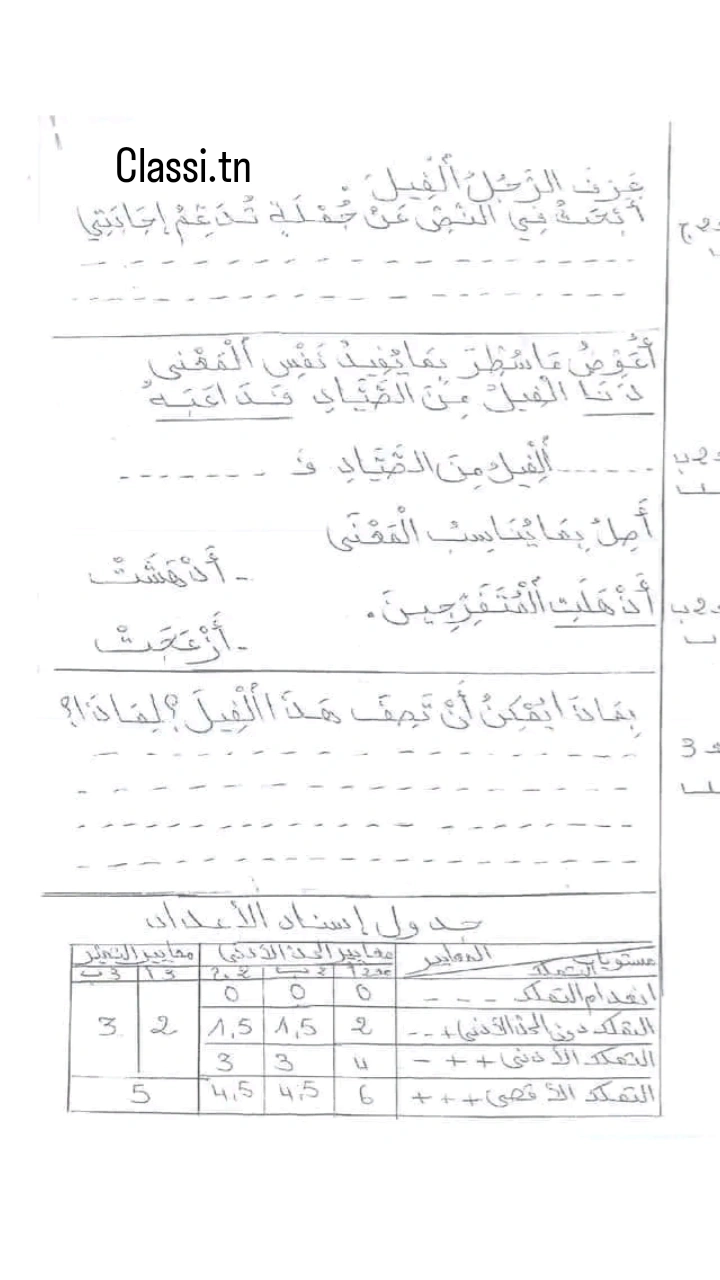 Classi.tn
عَرَفَ الرَّجُلُ الْفِيلَ .
أَبْحَثُ فِي النَّصِّ عَنْ جُمْلَةٍ تُدَعِّمُ إِجَابَتِي
أُعَوِّضُ مَا سُطِّرَ بِمَا يُفِيدُ نَفْسَ الْمَعْنَى
دَنَا الْفِيلُ مِنَ الصَّيَّادِ فَدَاعَبَهُ
...... الْفِيلُ مِنَ الصَّيَّادِ فَ -------
أَصِلُ بِمَا يُنَاسِبُ الْمَعْنَى
- أَدْهَشَتْ
أَذْهَلَتِ الْمُتَفَرِّجِينَ.
- أَزْعَجَتْ
بِمَاذَا يُمْكِنُ أَنْ تَصِفَ هَذَا الْفِيلَ؟ لِمَاذَا؟
مع 3
جدول إسناد الأعداد
مستويات التملك المعايير معايير الحد الأدنى معايير التميز
مع 2 أ 2 ب 2 ج 3 أ 3 ب
انعدام التملك - - - 0 0 0
التملك دون الحد الأدنى + - - 2 1,5 1,5 2 3
التملك الأدنى + + - 4 3 3
التملك الأقصى + + + 6 4,5 4,5 5